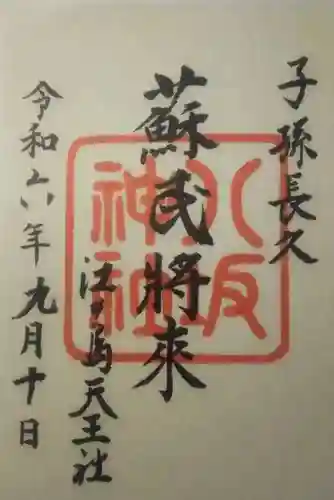 子孫長久
蘇民將來
八坂神社
江ノ島天王社
令和六年九月十日